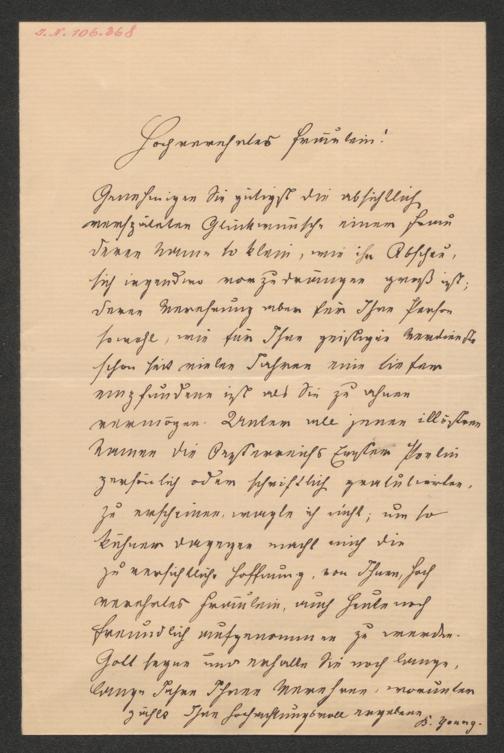 J. N. 106.368
Hochverehrtes Fräulein!
Genehmigen Sie gütigst die absichtlich
verspäteten Glückwünsche einer Frau
deren Name so klein, wie ihr Abscheu,
sich irgendwo vorzudrängen groß ist;
deren Verehrung aber für Ihre Person
sowohl, wie für Ihre geistigen Verdienste
schon seit vielen Jahren eine tiefer
empfundene ist als Sie zu ahnen
vermögen. Unter all jenen illüstren
Namen die Oesterreichs Ersten Poetin
persönlich oder schriftlich gratulierten,
zu erscheinen, wagte ich nicht; um so
kühner dagegen macht mich die
zuversichtliche Hoffnung, von Ihnen, hoch
verehrtes Fräulein, auch heute noch
freundlich aufgenommen zu werden.
Gott segne und erhalte Sie noch lange,
lange Jahre Ihren Verehrern, worunter
zählt Ihre hochachtungsvoll ergebene
B. Young.